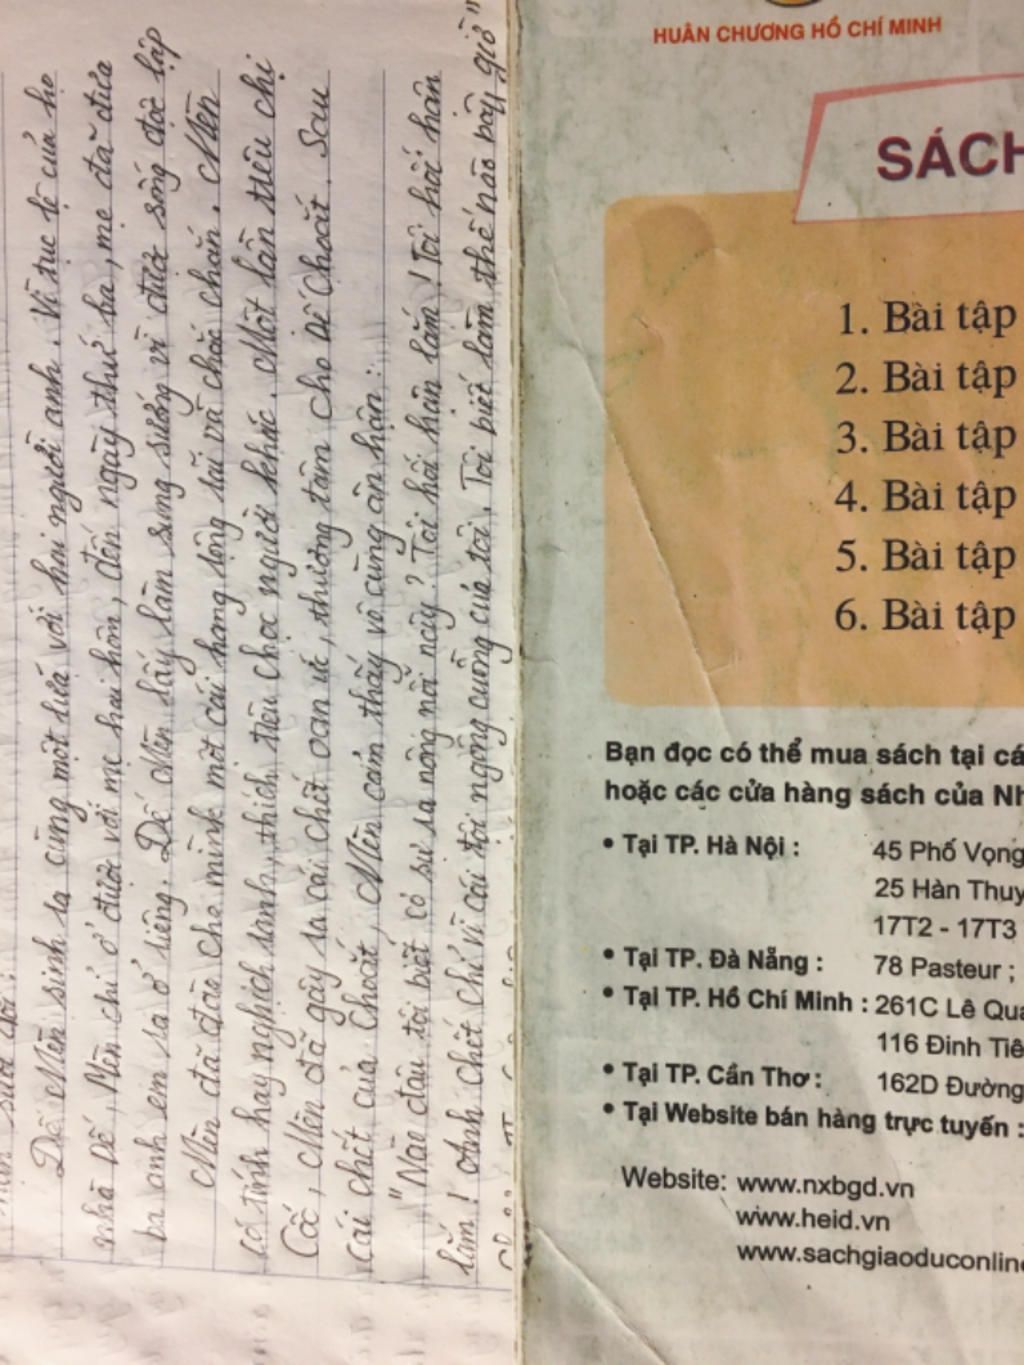 Dế Mèn sinh ra cùng một lứa với hai người anh. Vì tục lệ của họ
nhà Dế, Mèn chỉ ở được với mẹ hai hôm, đến ngày thứ ba, mẹ đã đưa
ba anh em ra ở riêng. Dế Mèn lấy làm sung sướng vì được sống độc lập
Mèn đã đào cho mình một cái hang rộng rãi và chắc chắn. Mèn
có tính hay nghịch ranh, thích trêu chọc người khác. Một lần trêu chị
Cốc, Mèn đã gây ra cái chết oan ức, thương tâm cho Dế Choắt. Sau
cái chết của Choắt, Mèn cảm thấy vô cùng ân hận:
"Nào đâu tôi biết có sự ra nông nỗi này? Tôi hối hận lắm! Tôi hối hận
lắm! Anh chết chỉ vì cái tội ngông cuồng của tôi. Tôi biết làm thế nào bây giờ"
HUÂN CHƯƠNG HỒ CHÍ MINH
SÁCH
1. Bài tập
2. Bài tập
3. Bài tập
4. Bài tập
5. Bài tập
6. Bài tập
Bạn đọc có thể mua sách tại
hoặc các cửa hàng sách của
• Tại TP. Hà Nội : 45 Phố Vọng
25 Hàn Thuy
17T2 - 17T3
• Tại TP. Đà Nẵng : 78 Pasteur ;
• Tại TP. Hồ Chí Minh : 261C Lê
116 Đinh
• Tại TP. Cần Thơ : 162D Đường
• Tại Website bán hàng trực tuyến :
Website: www.nxbgd.vn
www.heid.vn
www.sachgiaoduconline